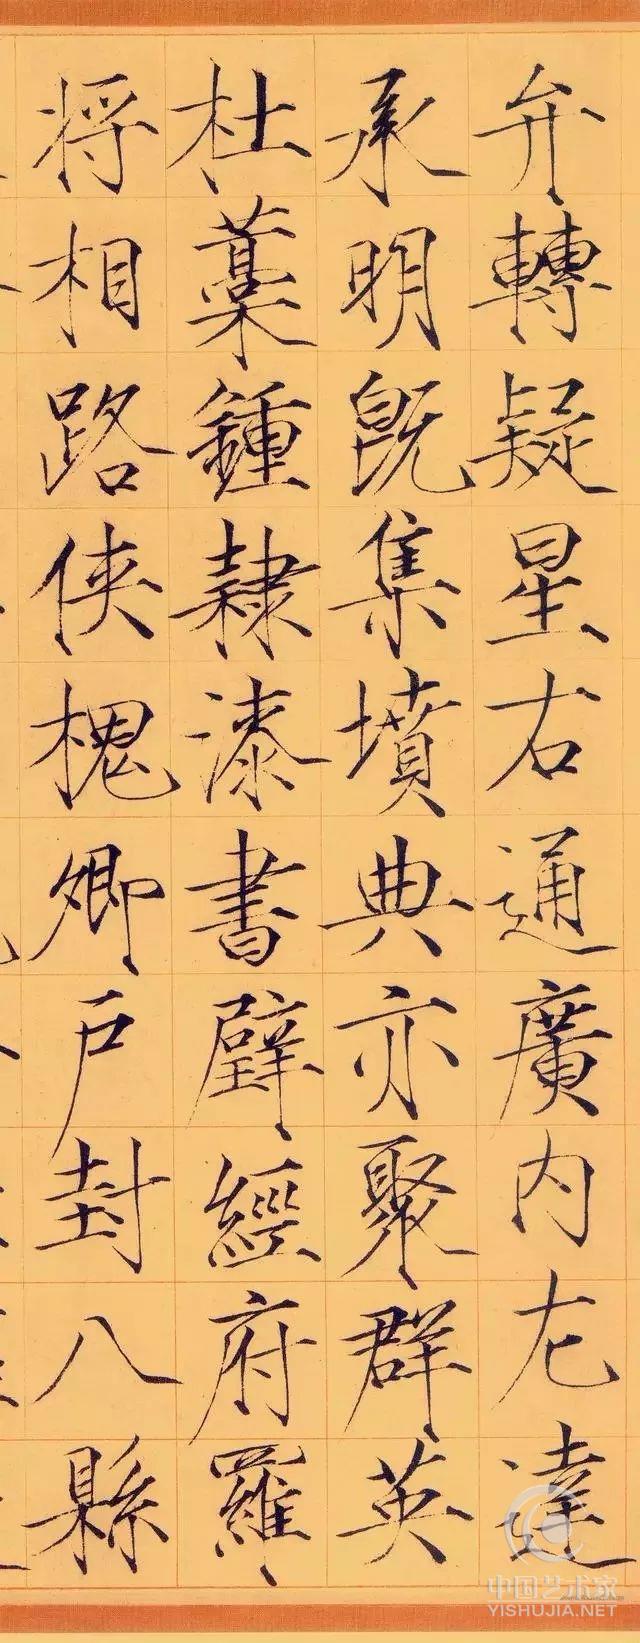 弁轉疑星右通廣内左達
承明既集墳典亦聚群英
杜藁鍾隸漆書壁經府羅
将相路侠槐卿户封八縣
中国艺术家
YISHUJIA.NET